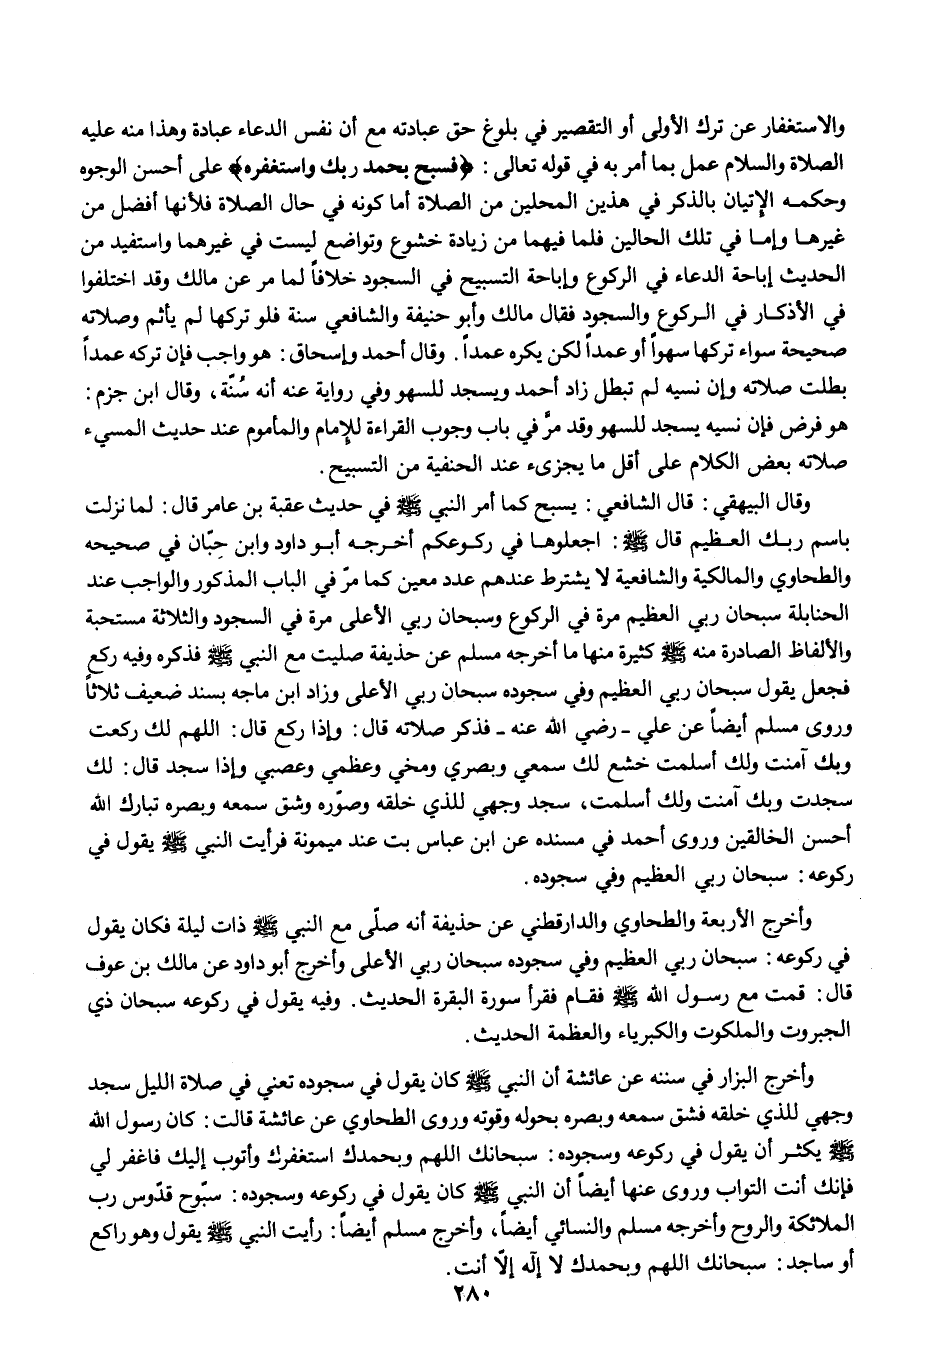 والاستغفار عن ترك الأولى أو التقصير في بلوغ حق عبادته مع أن نفس الدعاء عبادة وهذا منه عليه
الصلاة والسلام عمل بما أمر به في قوله تعالى : ﴿فسبح بحمد ربك واستغفره﴾ على أحسن الوجوه
وحكمه الإتيان بالذكر في هذين المحلين من الصلاة أما كونه في حال الصلاة فلأنها أفضل من
غيرها وإما في تلك الحالين فلما فيهما من زيادة خشوع وتواضع ليست في غيرهما واستفيد من
الحديث إباحة الدعاء في الركوع وإباحة التسبيح في السجود خلافاً لما مر عن مالك وقد اختلفوا
في الأذكار في الركوع والسجود فقال مالك وأبو حنيفة والشافعي سنة فلو تركها لم يأثم وصلاته
صحيحة سواء تركها سهواً أو عمداً لكن يكره عمداً . وقال أحمد وإسحاق : هو واجب فإن تركه عمداً
بطلت صلاته وإن نسيه لم تبطل زاد أحمد ويسجد للسهو وفي رواية عنه أنه سُنّة، وقال ابن جزم :
هو فرض فإن نسيه يسجد للسهو وقد مرَّ في باب وجوب القراءة للإمام والمأموم عند حديث المسيء
صلاته بعض الكلام على أقل ما يجزىء عند الحنفية من التسبيح .
وقال البيهقي : قال الشافعي : يسبح كما أمر النبي ﷺ في حديث عقبة بن عامر قال : لما نزلت
باسم ربك العظيم قال ﷺ : اجعلوها في ركوعكم أخرجه أبو داود وابن حِبّان في صحيحه
والطحاوي والمالكية والشافعية لا يشترط عندهم عدد معين كما مرّ في الباب المذكور والواجب عند
الحنابلة سبحان ربي العظيم مرة في الركوع وسبحان ربي الأعلى مرة في السجود والثلاثة مستحبة
والألفاظ الصادرة منه ﷺ كثيرة منها ما أخرجه مسلم عن حذيفة صليت مع النبي ﷺ فذكره وفيه ركع
فجعل يقول سبحان ربي العظيم وفي سجوده سبحان ربي الأعلى وزاد ابن ماجه بسند ضعيف ثلاثاً
وروى مسلم أيضاً عن علي ـ رضي الله عنه ـ فذكر صلاته قال : وإذا ركع قال : اللهم لك ركعت
وبك آمنت ولك أسلمت خشع لك سمعي وبصري ومخي وعظمي وعصبي وإذا سجد قال : لك
سجدت وبك آمنت ولك أسلمت، سجد وجهي للذي خلقه وصوّره وشق سمعه وبصره تبارك الله
أحسن الخالقين وروى أحمد في مسنده عن ابن عباس بت عند ميمونة فرأيت النبي ﷺ يقول في
ركوعه : سبحان ربي العظيم وفي سجوده .
وأخرج الأربعة والطحاوي والدارقطني عن حذيفة أنه صلّى مع النبي ﷺ ذات ليلة فكان يقول
في ركوعه : سبحان ربي العظيم وفي سجوده سبحان ربي الأعلى وأخرج أبو داود عن مالك بن عوف
قال : قمت مع رسول الله ﷺ فقام فقرأ سورة البقرة الحديث. وفيه يقول في ركوعه سبحان ذي
الجبروت والملكوت والكبرياء والعظمة الحديث.
وأخرج البزار في سننه عن عائشة أن النبي ﷺ كان يقول في سجوده تعني في صلاة الليل سجد
وجهي للذي خلقه فشق سمعه وبصره بحوله وقوته وروى الطحاوي عن عائشة قالت : كان رسول الله
ﷺ يكثر أن يقول في ركوعه وسجوده : سبحانك اللهم وبحمدك استغفرك وأتوب إليك فاغفر لي
فإنك أنت التواب وروى عنها أيضاً أن النبي ﷺ كان يقول في ركوعه وسجوده : سبّوح قدّوس رب
الملائكة والروح وأخرجه مسلم والنسائي أيضاً، وأخرج مسلم أيضاً : رأيت النبي ﷺ يقول وهو راكع
أو ساجد : سبحانك اللهم وبحمدك لا إلٰه إلّا أنت.
٢٨٠